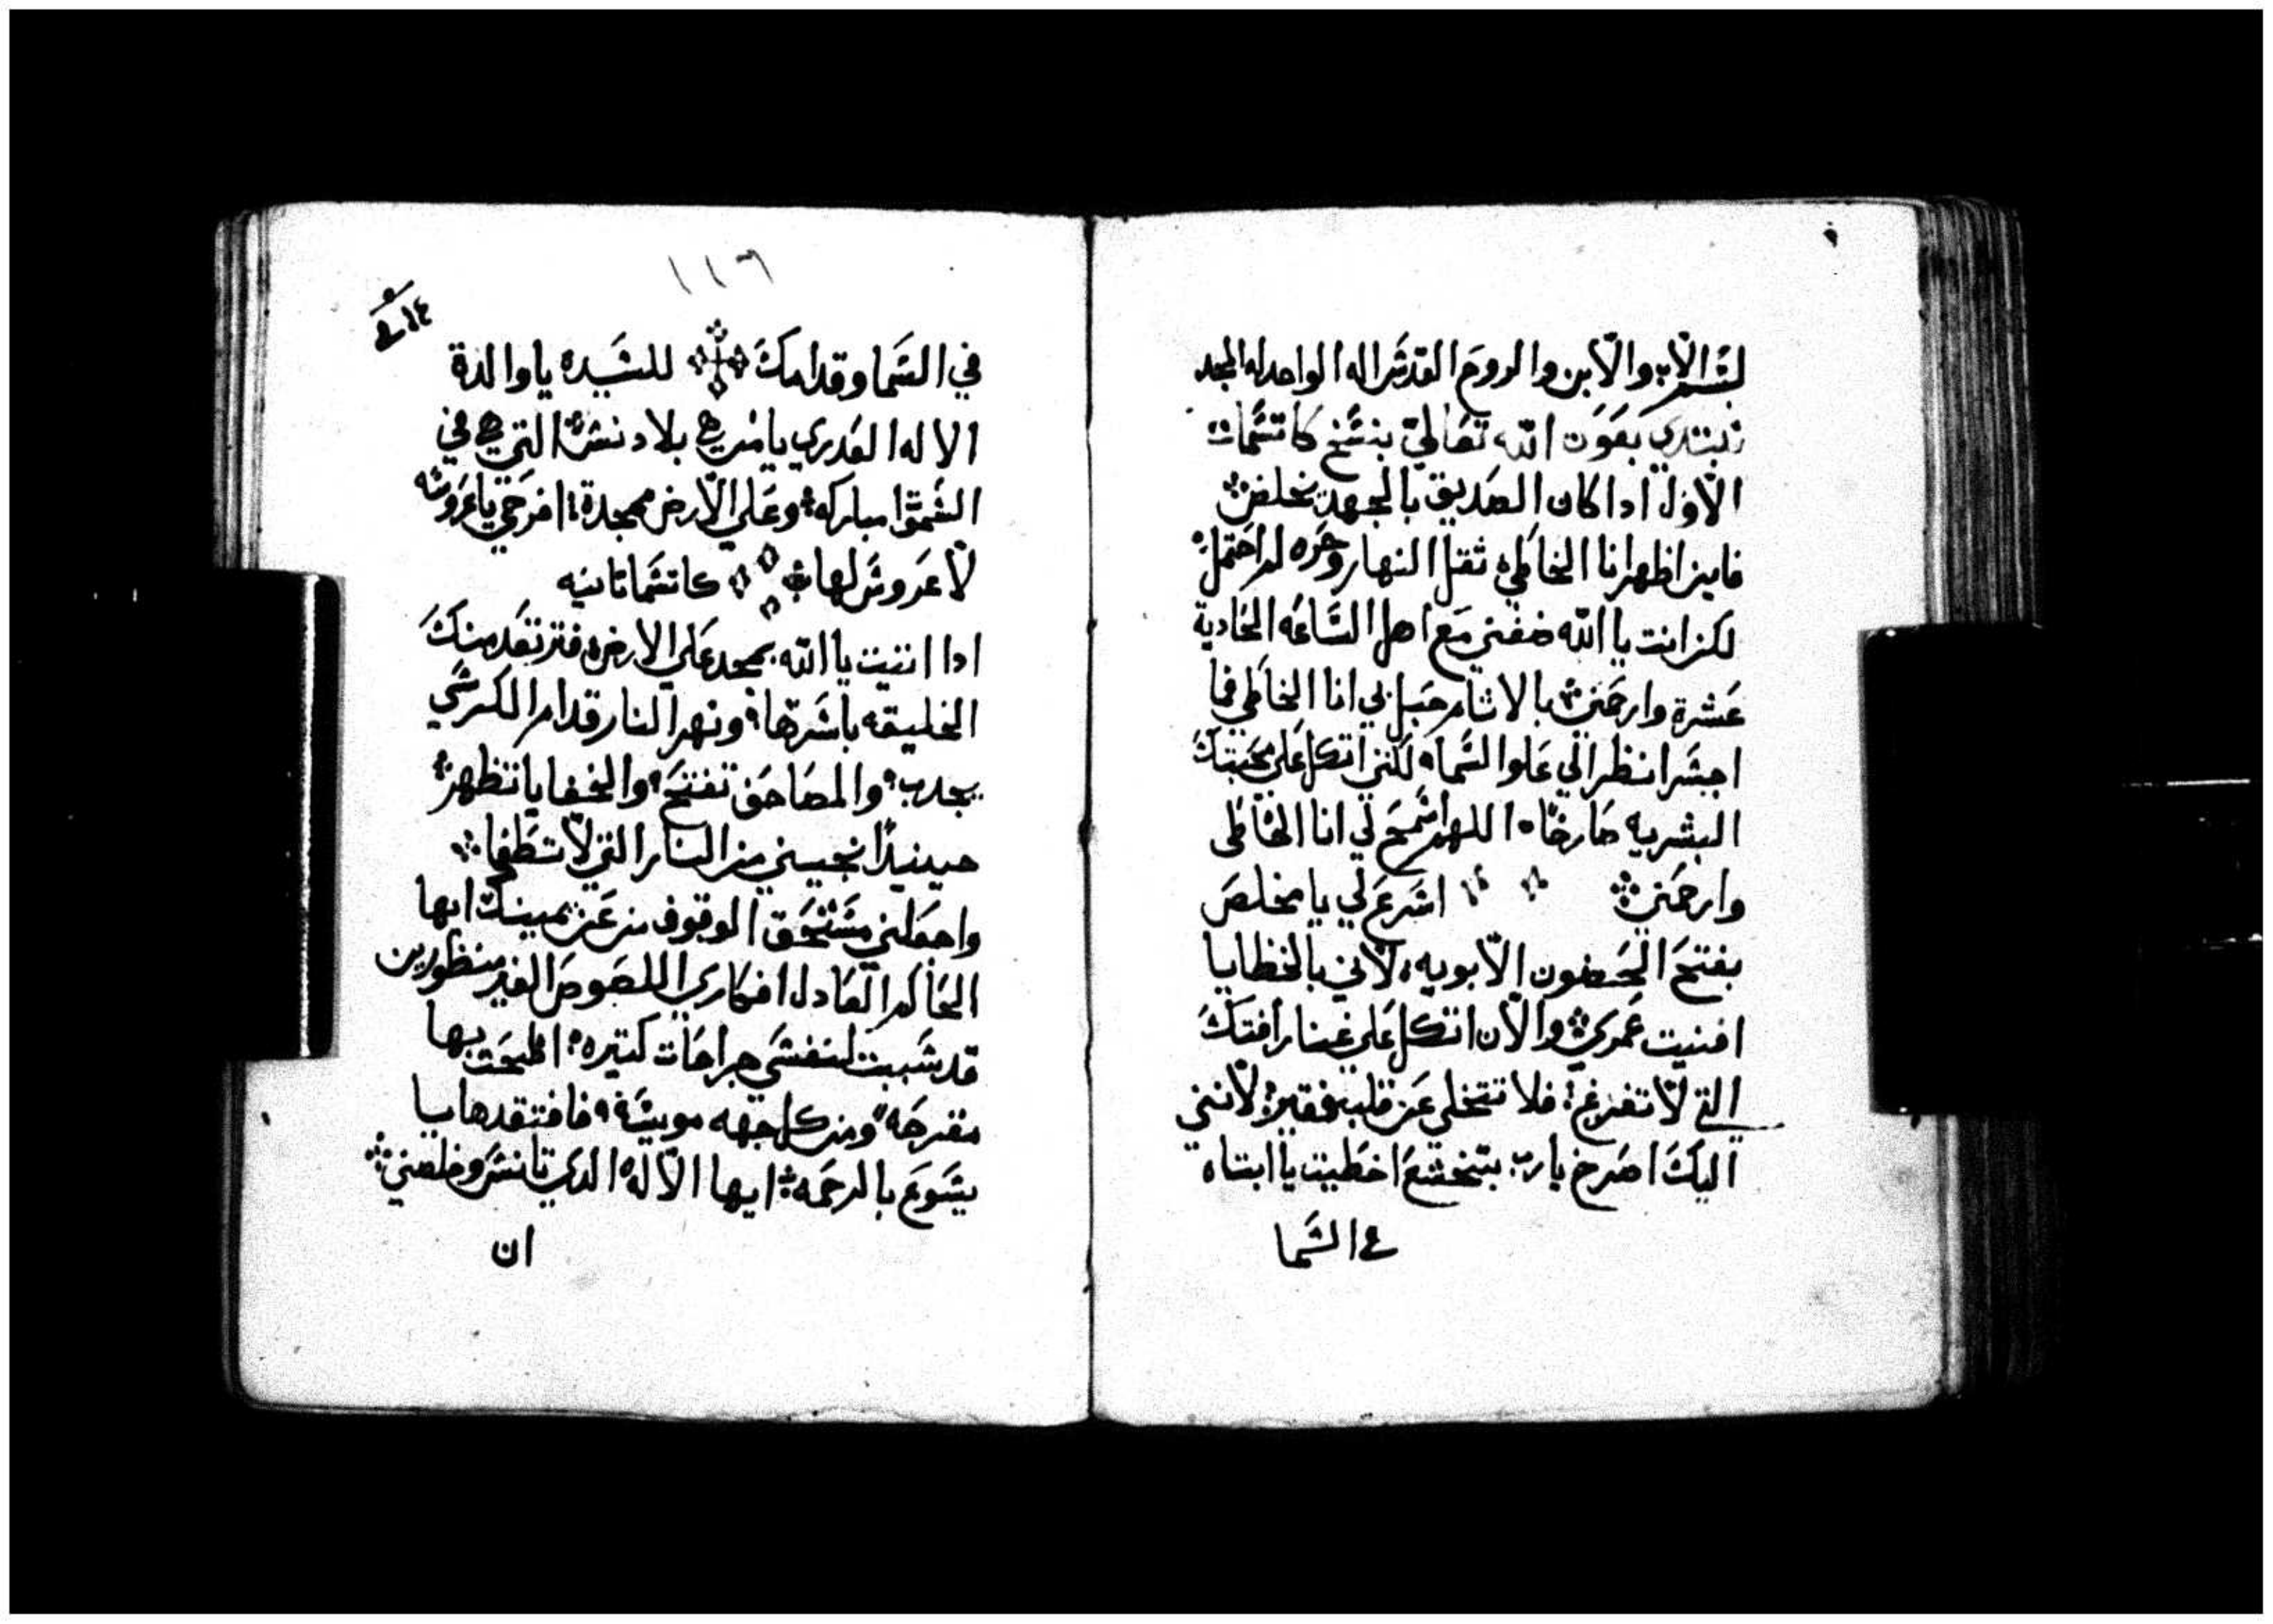 بسم الاب والابن والروح القدس اله الواحد له المجد
نبتدي بعون الله تعالي بنسخ كاتسمات
الاول ادا كان الصديق بالجهد يخلص
فاين اظهر انا الخاطي ثقل النهار وحره لم احتمل
لكن انت يا الله ضفني مع اهل الساعه الحادية
عشرة وارحمني بالاثام حبل بي انا الخاطي فما
اجسر انظر الي علوا السما لكني اتكل علي محبتك
البشريه صارخا اللهم اسمح لي انا الخاطي
وارحمني اسرع لي يا مخلص
بفتح الحضون الابويه لاني بالخطايا
افنيت عمري والان اتكل علي غنا رافتك
التي لا تفرغ فلا تتخلي عن قلب فقير لانني
اليك اصرخ يا رب بتخشع اخطيت يا ابتاه
في السما
١١٦
في السما وقدامك للسيده يا والدة
الاله العدري يا مريم بلا دنس التي هي في
السموا مباركه وعلي الارض ممجدة افرحي يا عروسه
لا عروس لها كاتسما تانيه
ادا اتيت يا الله بمجد علي الارض فترتعد منك
الخليقه باسرها ونهر النار قدام الكرسي
يجدب والمصاحف تفتح والخفايا تظهر
حينيدا نجيني من النار التي لا تطفا
واجعلني مستحق الوقوف من عن يمينك ايها
الحاكم العادل افكاري اللصوص الغير منظورين
قد سببت لنفسي جراحات كتيره اطبحت بها
مقترحه ومن كل جهه مويسة فافتقدها يا
يسوع بالرحمه ايها الاله الدي تانس وخلصني
ان